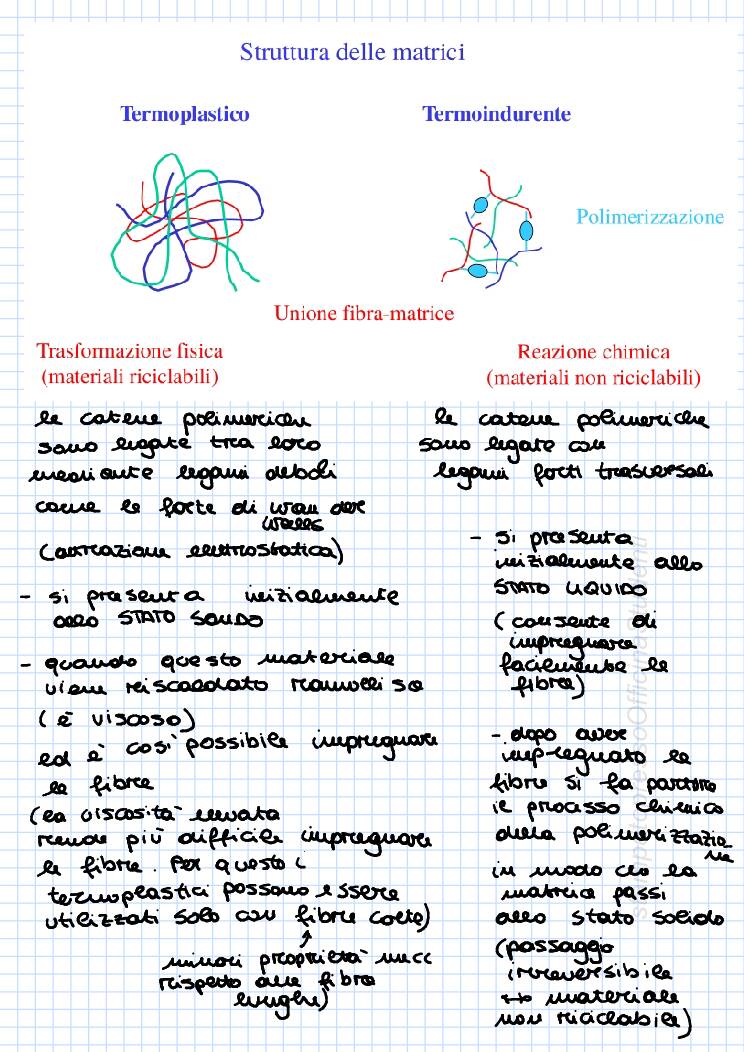 Struttura delle matrici
Termoplastico
Termoindurente
Polimerizzazione
Unione fibra-matrice
Trasformazione fisica
(materiali riciclabili)
Reazione chimica
(materiali non riciclabili)
le catene polimeriche
sono legate tra loro
mediante legami deboli
come le forze di wan der
walls
(attrazione elettrostatica)
- si presenta inizialmente
allo STATO SOLIDO
- quando questo materiale
viene riscaldato rammollisce
(è viscoso)
ed è così possibile impregnare
le fibre
(la viscosità elevata
rende più difficile impregnare
le fibre. Per questo i
termoplastici possono essere
utilizzati solo con fibre corte)
minori proprietà mecc
rispetto alle fibre
lunghe)
le catene polimeriche
sono legate con
legami forti trasversali
- si presenta
inizialmente allo
STATO LIQUIDO
(consente di
impregnare
facilmente le
fibre)
- dopo aver
impregnato le
fibre si fa partire
il processo chimico
della polimerizzazio
ne
in modo che la
matrice passi
allo stato solido
(passaggio
irreversibile
↔ materiale
non riciclabile)